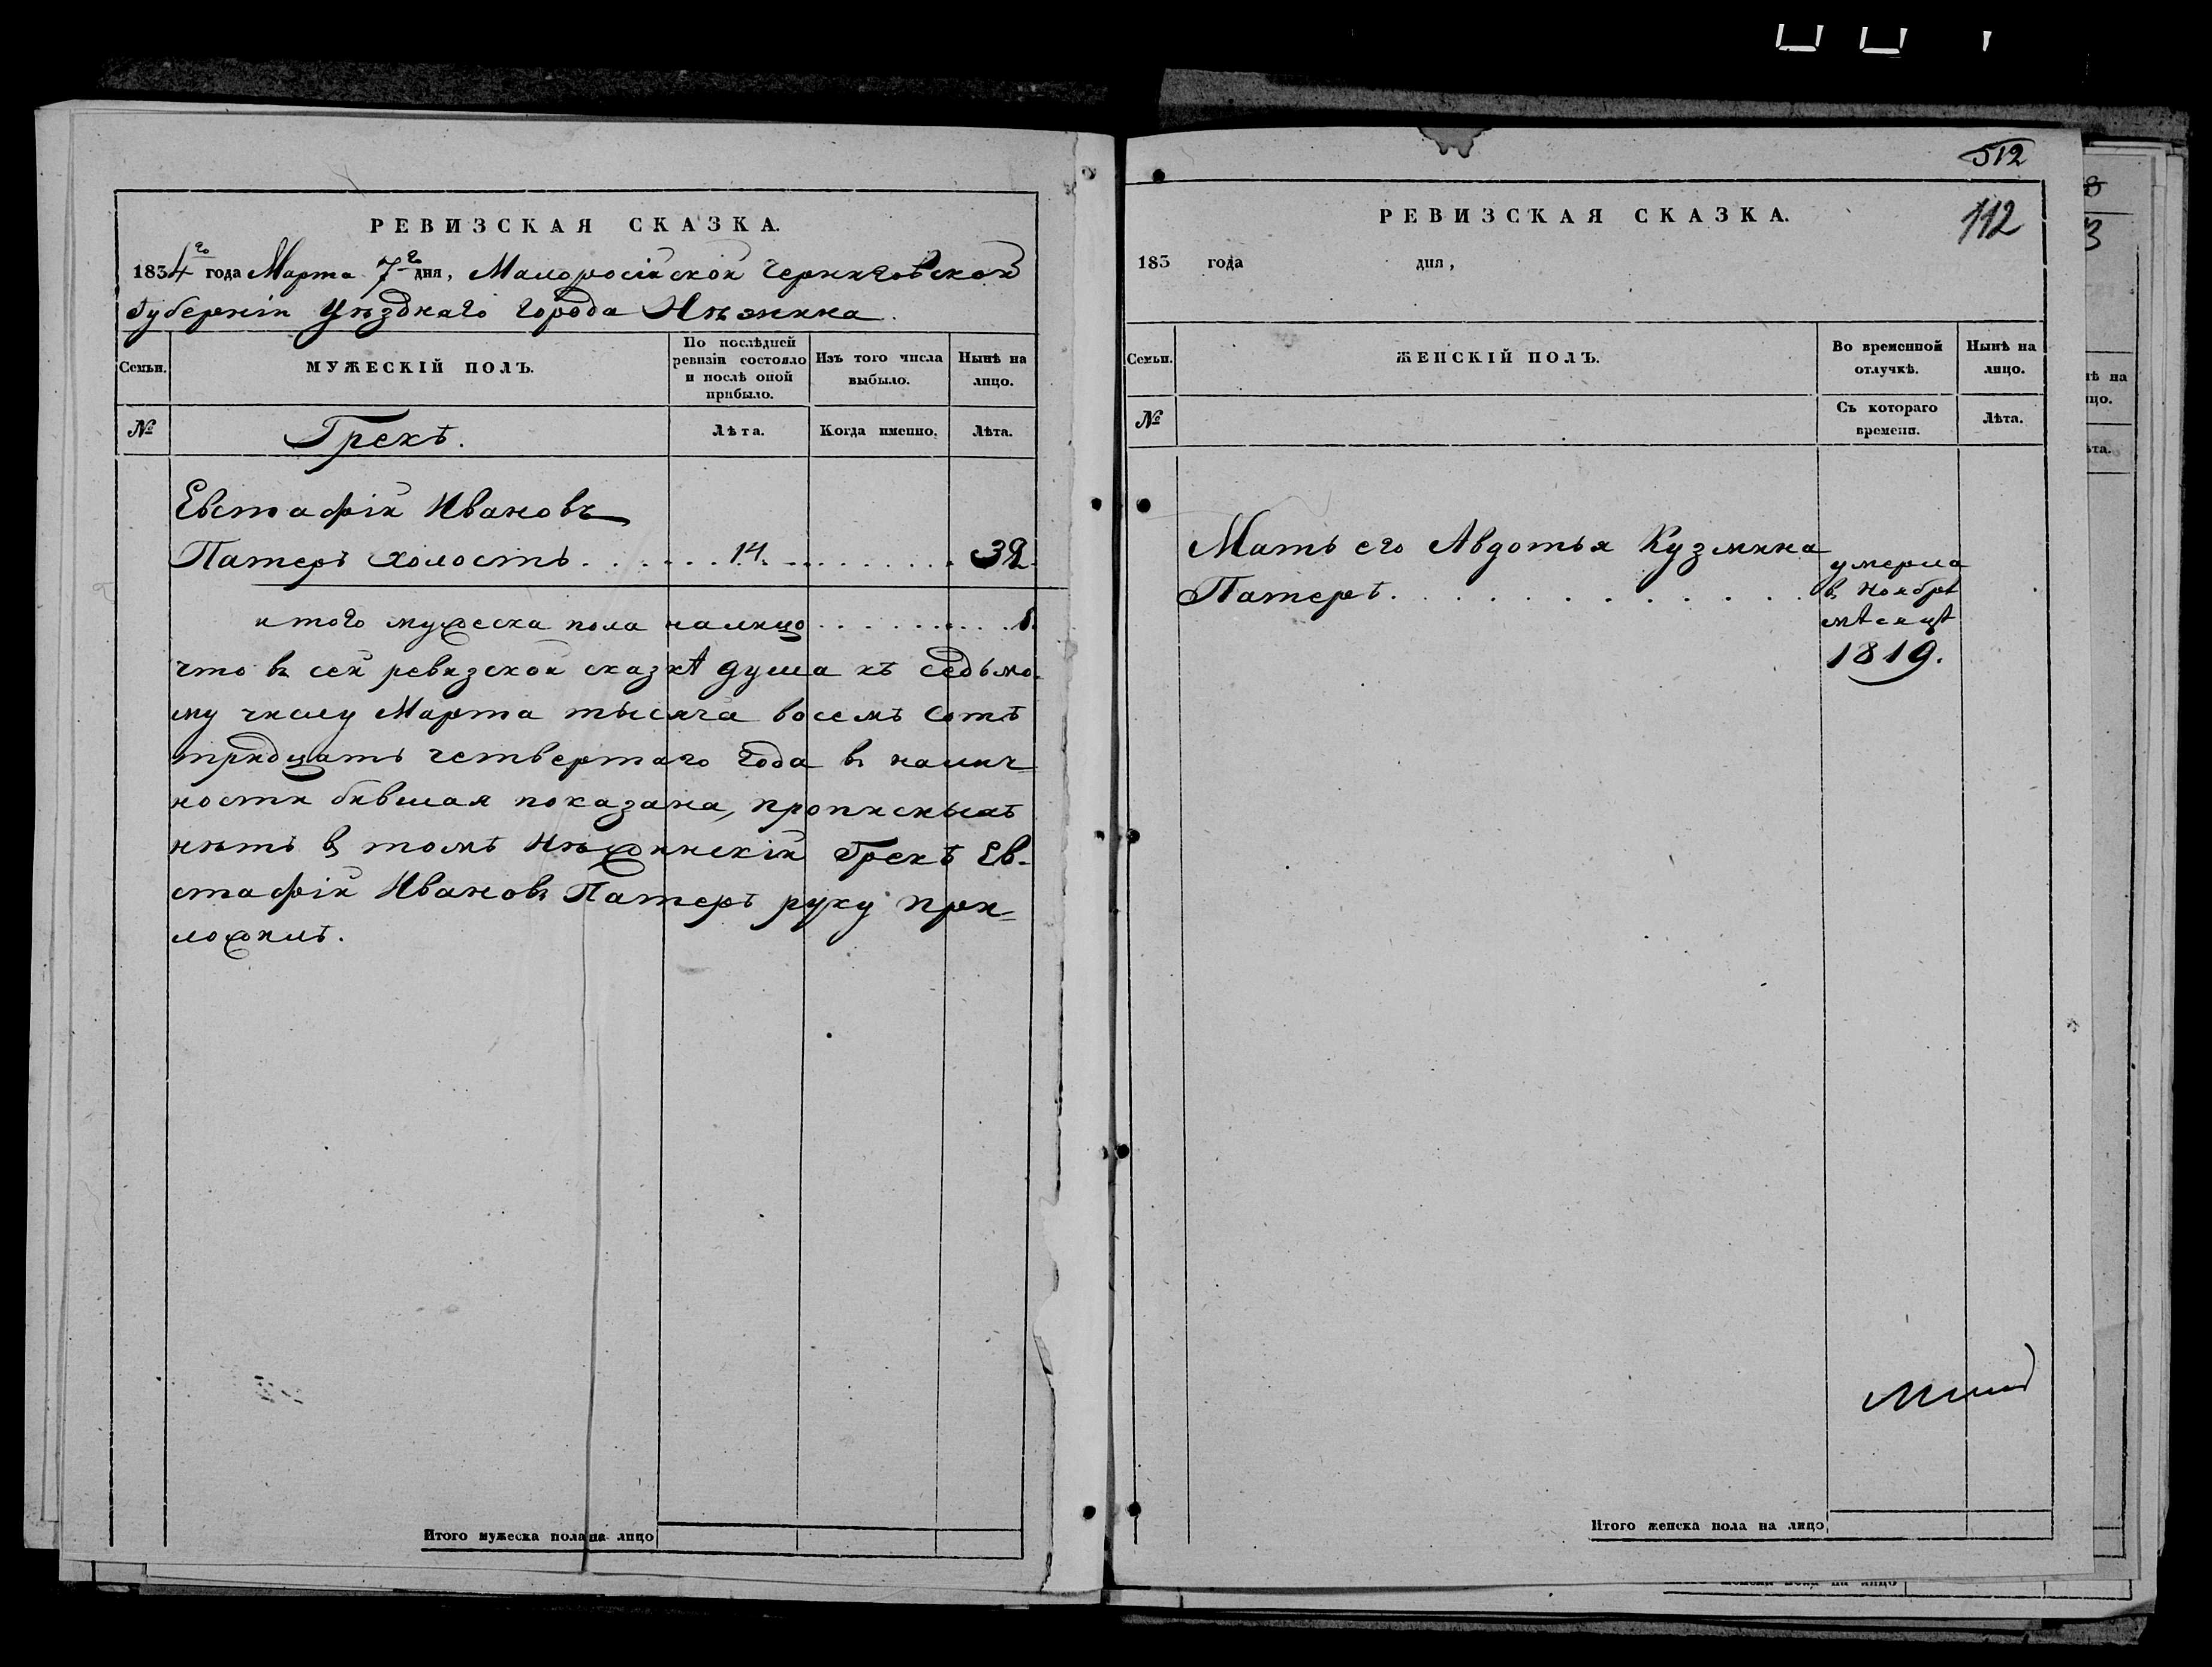 РЕВИЗСКАЯ СКАЗКА.
1834го года Марта 7го дня, Малоросійской Черниговской
Губерніи Уѣзднаго города Нѣжина.
Семьи.
МУЖЕСКІЙ ПОЛЪ.
По послѣдней
ревизіи состояло
и послѣ оной
прибыло.
Изъ того числа
выбыло.
Нынѣ на
лицо.
№
Грекъ.
Лѣта.
Когда именно.
Лѣта.
Евстафій Ивановъ
Патеръ холостъ. 14. 32.
итого мужеска пола налицо 1.
что въ сей ревизской сказкѣ душа къ седьмо-
му числу Марта тысяча восемъ сотъ
тридцать четвертаго года въ налич-
ности бывшая показана, прописныхъ
нѣтъ въ томъ Нѣжинскій Грекъ Ев-
стафій Ивановъ Патеръ руку при-
ложилъ.
Итого мужеска пола на лицо
512
112
РЕВИЗСКАЯ СКАЗКА.
183 года дня,
Семьи.
ЖЕНСКІЙ ПОЛЪ.
Во временной
отлучкѣ.
Нынѣ на
лицо.
№
Съ котораго
времени.
Лѣта.
Мать его Авдотья Кузмина
Патеръ.
умерла
въ Ноябрѣ
мѣсяцѣ
1819.
Итого женска пола на лицо